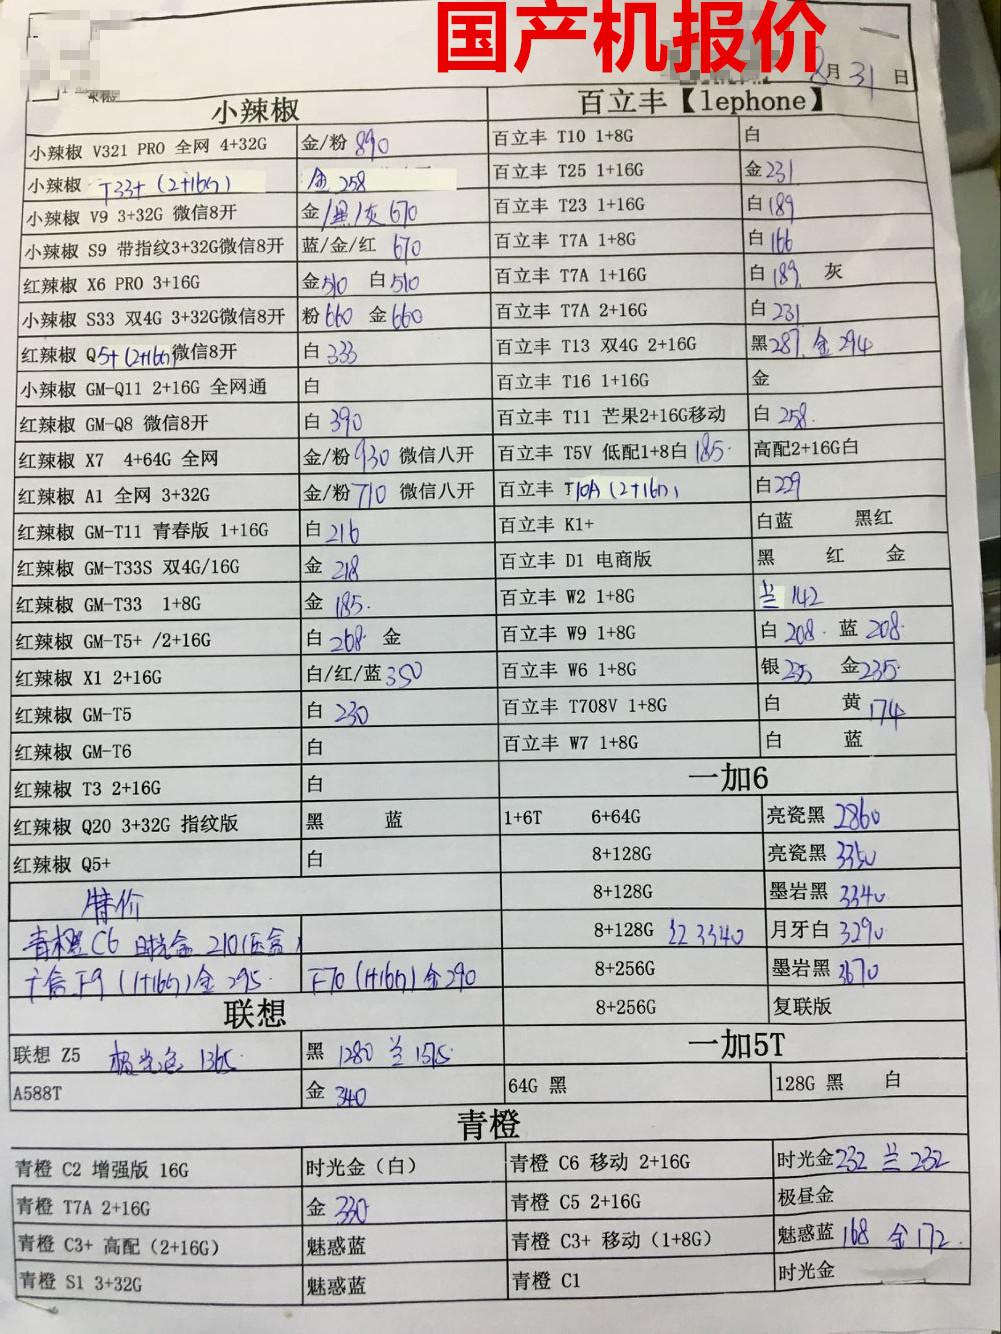 国产机报价
8月31日
小辣椒 百立丰【lephone】
小辣椒 V321 PRO 全网 4+32G 金/粉 890 百立丰 T10 1+8G 白
小辣椒 T33+ (2+16G) 金 258 百立丰 T25 1+16G 金 231
小辣椒 V9 3+32G 微信8开 金/黑/灰 670 百立丰 T23 1+16G 白 189
小辣椒 S9 带指纹3+32G微信8开 蓝/金/红 670 百立丰 T7A 1+8G 白 166
红辣椒 X6 PRO 3+16G 金510 白510 百立丰 T7A 1+16G 白 189 灰
小辣椒 S33 双4G 3+32G微信8开 粉 660 金 660 百立丰 T7A 2+16G 白 231
红辣椒 Q5+ (2+16G)微信8开 白 333 百立丰 T13 双4G 2+16G 黑287. 金 294
小辣椒 GM-Q11 2+16G 全网通 白 百立丰 T16 1+16G 金
红辣椒 GM-Q8 微信8开 白 390 百立丰 T11 芒果2+16G移动 白 258.
红辣椒 X7 4+64G 全网 金/粉 930 微信八开 百立丰 T5V 低配1+8白 185. 高配2+16G白
红辣椒 A1 全网 3+32G 金/粉 710 微信八开 百立丰 T10A (2+16G) 白229
红辣椒 GM-T11 青春版 1+16G 白 216 百立丰 K1+ 白蓝 黑红
红辣椒 GM-T33S 双4G/16G 金 218 百立丰 D1 电商版 黑 红 金
红辣椒 GM-T33 1+8G 金 185. 百立丰 W2 1+8G 兰 142
红辣椒 GM-T5+ /2+16G 白 268. 金 百立丰 W9 1+8G 白 208. 蓝 208.
红辣椒 X1 2+16G 白/红/蓝 350 百立丰 W6 1+8G 银 235 金235.
红辣椒 GM-T5 白 230 百立丰 T708V 1+8G 白 黄 174
红辣椒 GM-T6 白 百立丰 W7 1+8G 白 蓝
红辣椒 T3 2+16G 白 一加6
红辣椒 Q20 3+32G 指纹版 黑 蓝 1+6T 6+64G 亮瓷黑 2860
红辣椒 Q5+ 白 8+128G 亮瓷黑 3350
特价 8+128G 墨岩黑 3340
青橙C6 时光金 210 8+128G 红 3340 月牙白 3290
F9 (1+16G)金 295. F70 (1+16G)金 290 8+256G 墨岩黑 3670
联想 8+256G 复联版
联想 Z5 极光色 1365. 黑 1280 兰 1315. 一加5T
A588T 金 340 64G 黑 128G 黑 白
青橙
青橙 C2 增强版 16G 时光金（白） 青橙 C6 移动 2+16G 时光金232 兰 232
青橙 T7A 2+16G 金 330 青橙 C5 2+16G 极昼金
青橙 C3+ 高配（2+16G） 魅惑蓝 青橙 C3+ 移动（1+8G） 魅惑蓝 168 金172.
青橙 S1 3+32G 魅惑蓝 青橙 C1 时光金